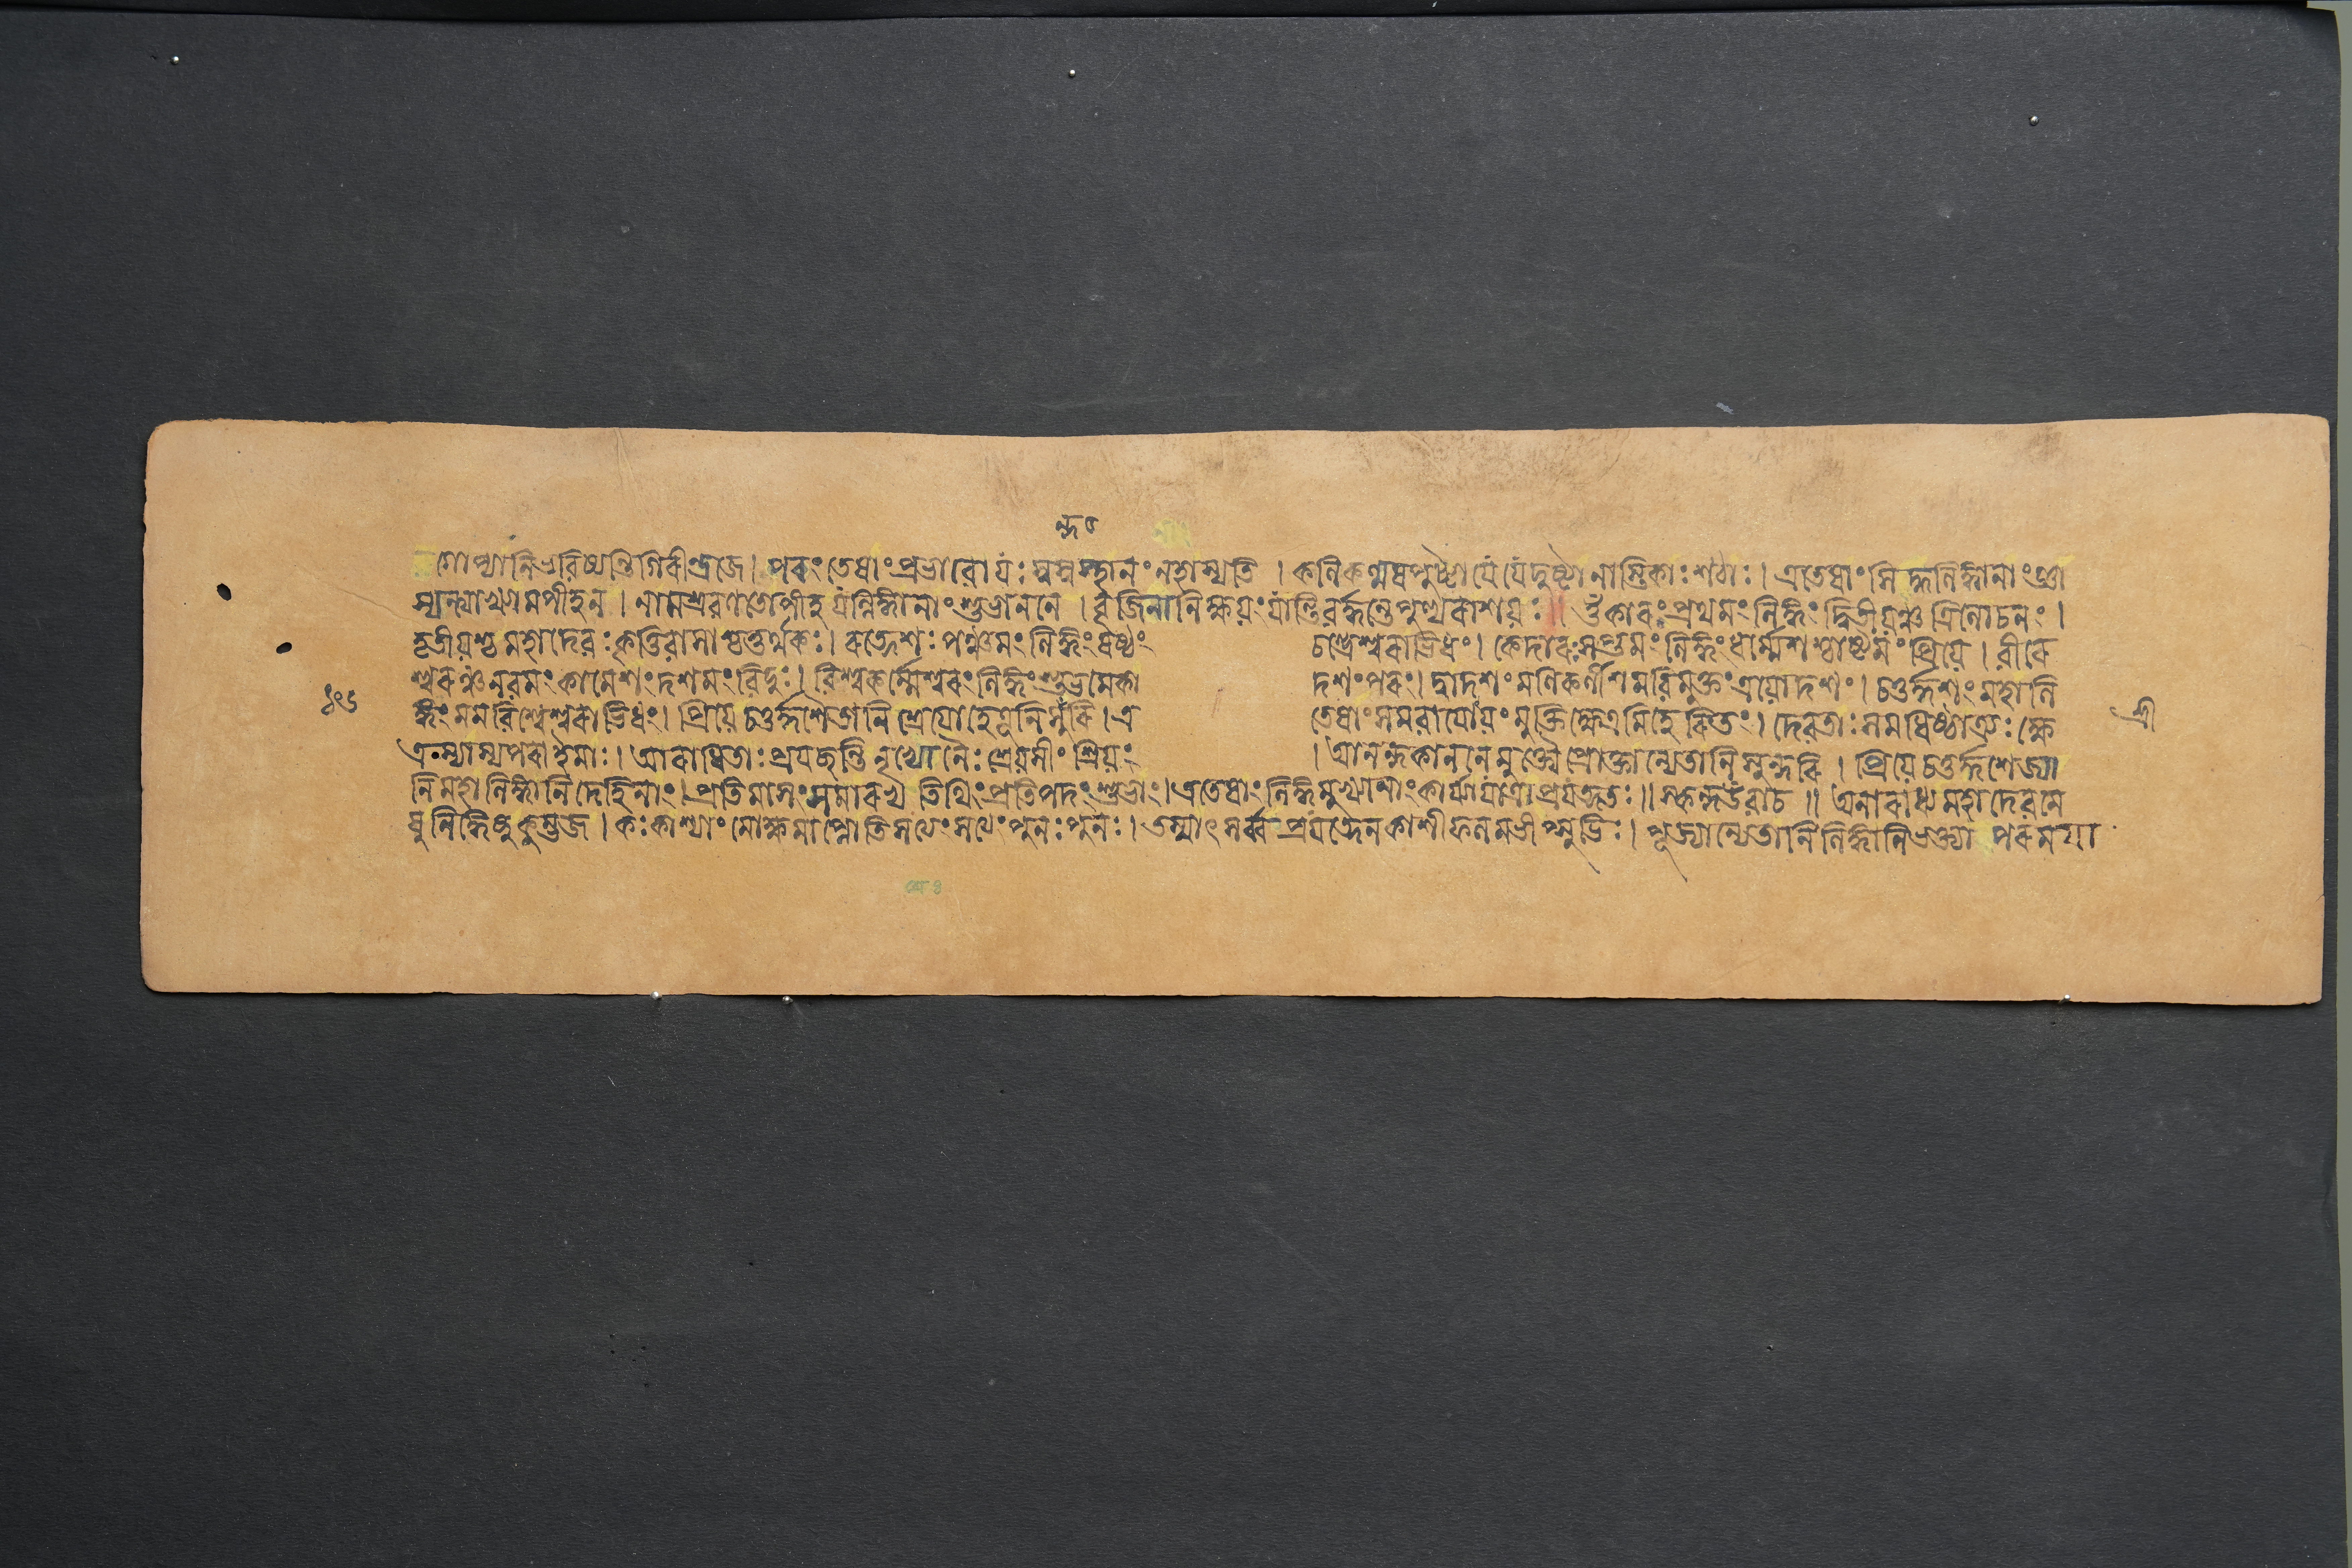 গোপ্যানি ভবিষ্যন্তি গিরীন্দ্রজে। পরং তেষাং প্রভাবো যঃ স্বস্বস্থানং ন হাস্যতি । কলিকল্মষপুষ্টা যে যে দুষ্টা নাস্তিকাঃ শঠাঃ । এতেষাং সিদ্ধলিঙ্গানাং জ্ঞা
স্যন্ত্যাখ্যামপীহ ন । নামশ্রবণতোপীহ যল্লিঙ্গানাং শুভাননে । বৃজিনানি ক্ষয়ং যান্তি বর্দ্ধন্তে পুণ্যরাশয়ঃ ॥ ওঁকারঃ প্রথমং লিঙ্গং দ্বিতীয়ঞ্চ ত্রিলোচনং ।
তৃতীয়শ্চ মহাদেবঃ কৃত্তিবাসাশ্চতুর্থকঃ । রত্নেশঃ পঞ্চমং লিঙ্গং ষষ্ঠং চন্দ্রেশ্বরাভিধং । কেদারঃ সপ্তমং লিঙ্গং ধর্ম্মেশশ্চাষ্টমং প্রিয়ে । বীরে
শ্বরঞ্চ নবমং কামেশং দশমং বিদুঃ । বিশ্বকর্ম্মেশ্বরং লিঙ্গং শুভমেকাদশং পরং । দ্বাদশং মণিকর্ণীশমবিমুক্তং ত্রয়োদশং । চতুর্দ্দশং মহালি
ঙ্গং মম বিশ্বেশ্বরাভিধং । প্রিয়ে চতুর্দ্দশৈতানি শ্রেয়োহেতূনি সুন্দরি । এতেষাং সমবায়োয়ং মুক্তিক্ষেত্রমিহেরিতং । দেবতাঃ সমধিষ্ঠাত্র্যঃ ক্ষে
ত্রস্যাস্য পরা ইমাঃ । আরাধিতাঃ প্রযচ্ছন্তি নৃভ্যো নৈঃশ্রেয়সীং শ্রিয়ং । আনন্দকাননে মুক্ত্যৈ প্রোক্তান্যেতানি সুন্দরি । প্রিয়ে চতুর্দ্দশেজ্যা
নি মহালিঙ্গানি দেহিনাং । প্রতিমাসং সমারভ্য তিথিং প্রতিপদং শুভাং । এতেষাং লিঙ্গমুখ্যানাং কার্য্যা যাত্রা প্রযত্নতঃ ॥ স্কন্দ উবাচ ॥ অনারাধ্য মহাদেবমে
ষু লিঙ্গেষু কুম্ভজ । কঃ কাশ্যাং মোক্ষমাপ্নোতি সত্যং সত্যং পুনঃ পুনঃ । তস্মাৎ সর্ব্বপ্রযত্নেন কাশীফলমভীপ্সুভিঃ । পূজ্যান্যেতানি লিঙ্গানি ভক্ত্যা পরময়া
শ্রী